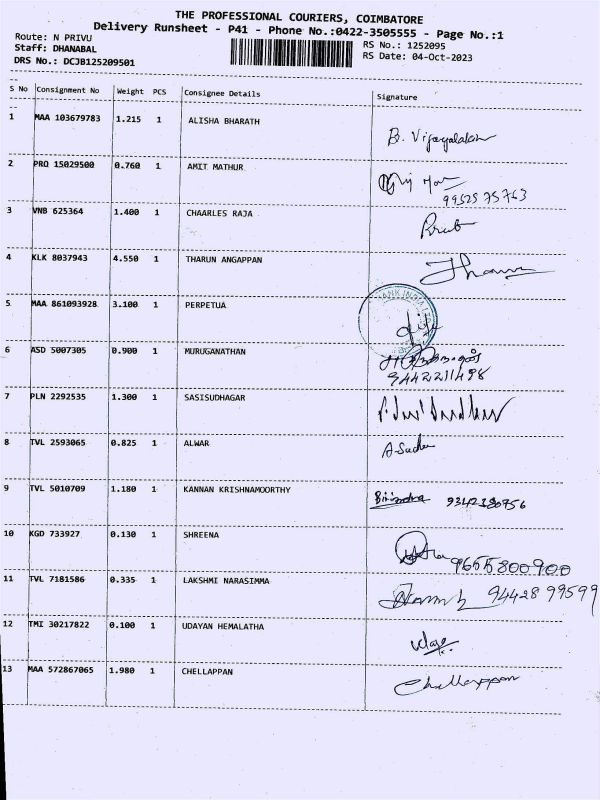 THE PROFESSIONAL COURIERS, COIMBATORE
Delivery Runsheet - P41 - Phone No.:0422-3505555 - Page No.:1
Route: N PRIVU
Staff: DHANABAL
DRS No.: DCJB125209501
RS No.: 1252095
RS Date: 04-Oct-2023
S No Consignment No Weight PCS Consignee Details Signature
1 MAA 103679783 1.215 1 ALISHA BHARATH B. Vijayalakshmi
2 PRQ 15029500 0.760 1 AMIT MATHUR
99525 75763
3 VNB 625364 1.400 1 CHAARLES RAJA
4 KLK 8037943 4.550 1 THARUN ANGAPPAN Tharun
5 MAA 861093928 3.100 1 PERPETUA
6 ASD 5007305 0.900 1 MURUGANATHAN
9442211498
7 PLN 2292535 1.300 1 SASISUDHAGAR
8 TVL 2593065 0.825 1 ALWAR
9 TVL 5010709 1.180 1 KANNAN KRISHNAMOORTHY 9342380756
10 KGD 733927 0.130 1 SHREENA 9655800900
11 TVL 7181586 0.335 1 LAKSHMI NARASIMMA 94428 99599
12 TMI 30217822 0.100 1 UDAYAN HEMALATHA
13 MAA 572867065 1.980 1 CHELLAPPAN Chellappan